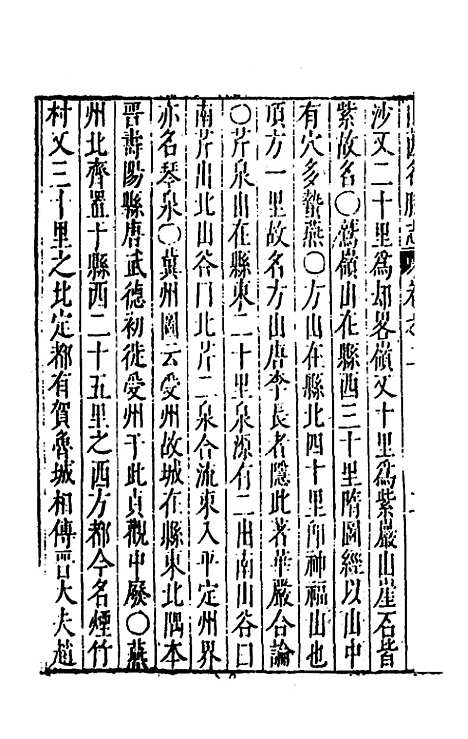 沙又二十里爲却畧嶺又十里爲紫巖山崖石皆
紫故名〇鷰嶺山在縣西三十里隋圖經以山中
有穴多蟄燕〇方山在縣北四十里卽神福山也
頂方一里故名方山唐李長者隱此著華嚴合論
〇芹泉山在縣東二十里泉源有二出南山谷曰
南芹出北山谷曰北芹二泉合流東入平定州界
亦名琴泉〇冀州圖云受州故城在縣東北隅本
晉壽陽縣唐武德初徙受州于此貞觀中廢〇燕
州北齊置于縣西二十五里之西方都今名煙竹
村又三十里之北定都有賀魯城相傳晉大夫趙